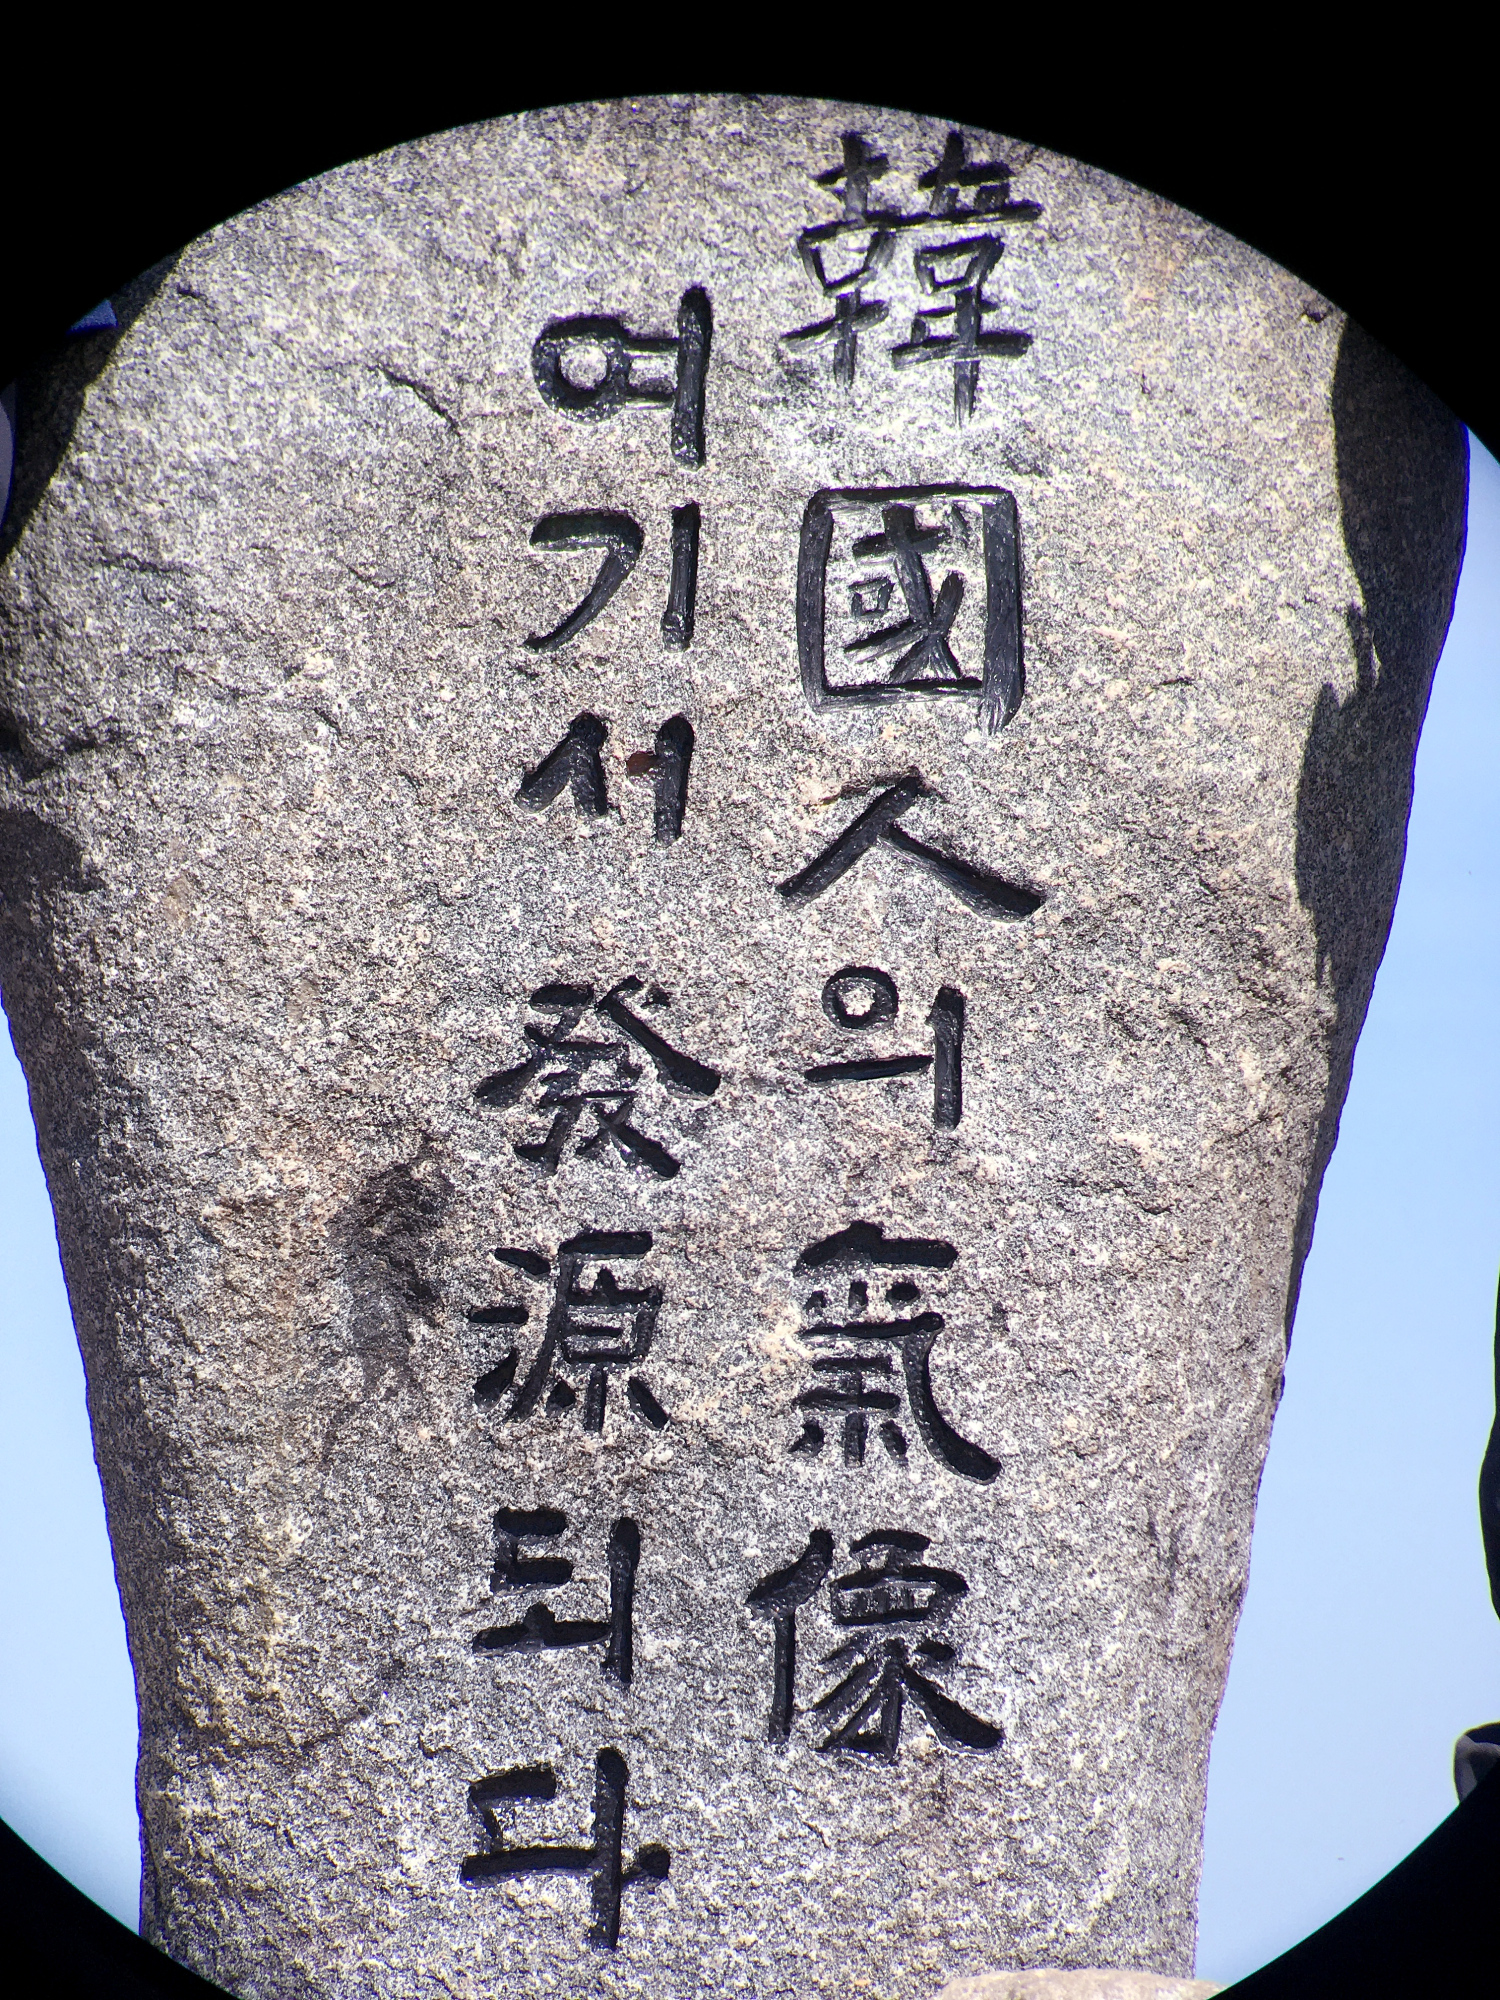 韓國人의 氣像
여기서 發源되다